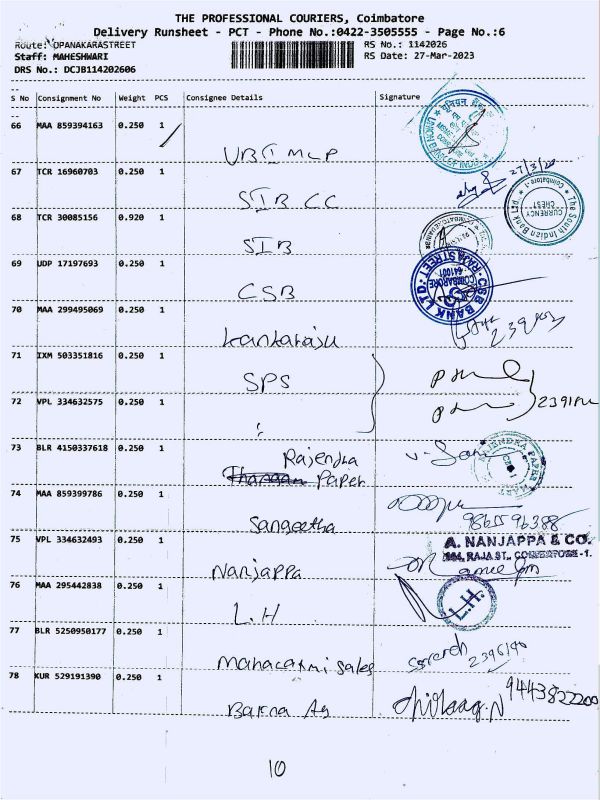 THE PROFESSIONAL COURIERS, Coimbatore
Delivery Runsheet - PCT - Phone No.:0422-3505555 - Page No.:6
Route: OPANAKARASTREET RS No.: 1142026
Staff: MAHESHWARI RS Date: 27-Mar-2023
DRS No.: DCJB114202606
S No Consignment No Weight PCS Consignee Details Signature
66 MAA 859394163 0.250 1
UBI MLP
67 TCR 16960703 0.250 1 27/3/20
SIB CC
68 TCR 30085156 0.920 1
SIB
69 UDP 17197693 0.250 1
CSB
CSB BANK LTD. RAJA STREET COIMBATORE 641001
The South Indian Bank Ltd. Coimbatore CURRENCY CHEST
70 MAA 299495069 0.250 1
Kankaraju
71 IXM 503351816 0.250 1
SPS
72 VPL 334632575 0.250 1
73 BLR 4150337618 0.250 1
Rajendra
Paper
74 MAA 859399786 0.250 1
Sangeetha 98655 96388
75 VPL 334632493 0.250 1 A. NANJAPPA & CO.
Nanjappa
76 MAA 295442838 0.250 1
L.H L.H
77 BLR 5250950177 0.250 1
Mahalaxmi Sales
78 KUR 529191390 0.250 1 9443822200
Barna Ag
10